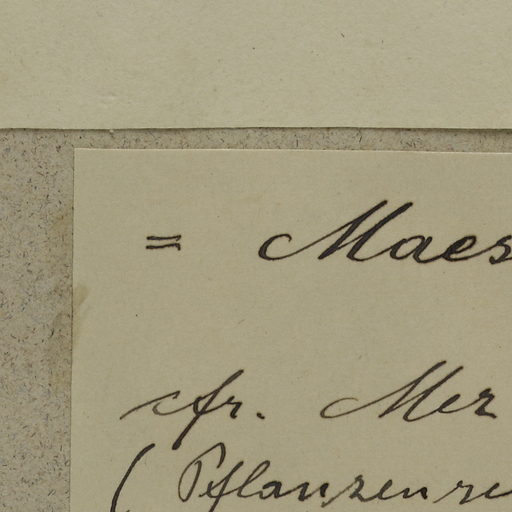 = Maes
cfr. Mez
(Pflanzenre